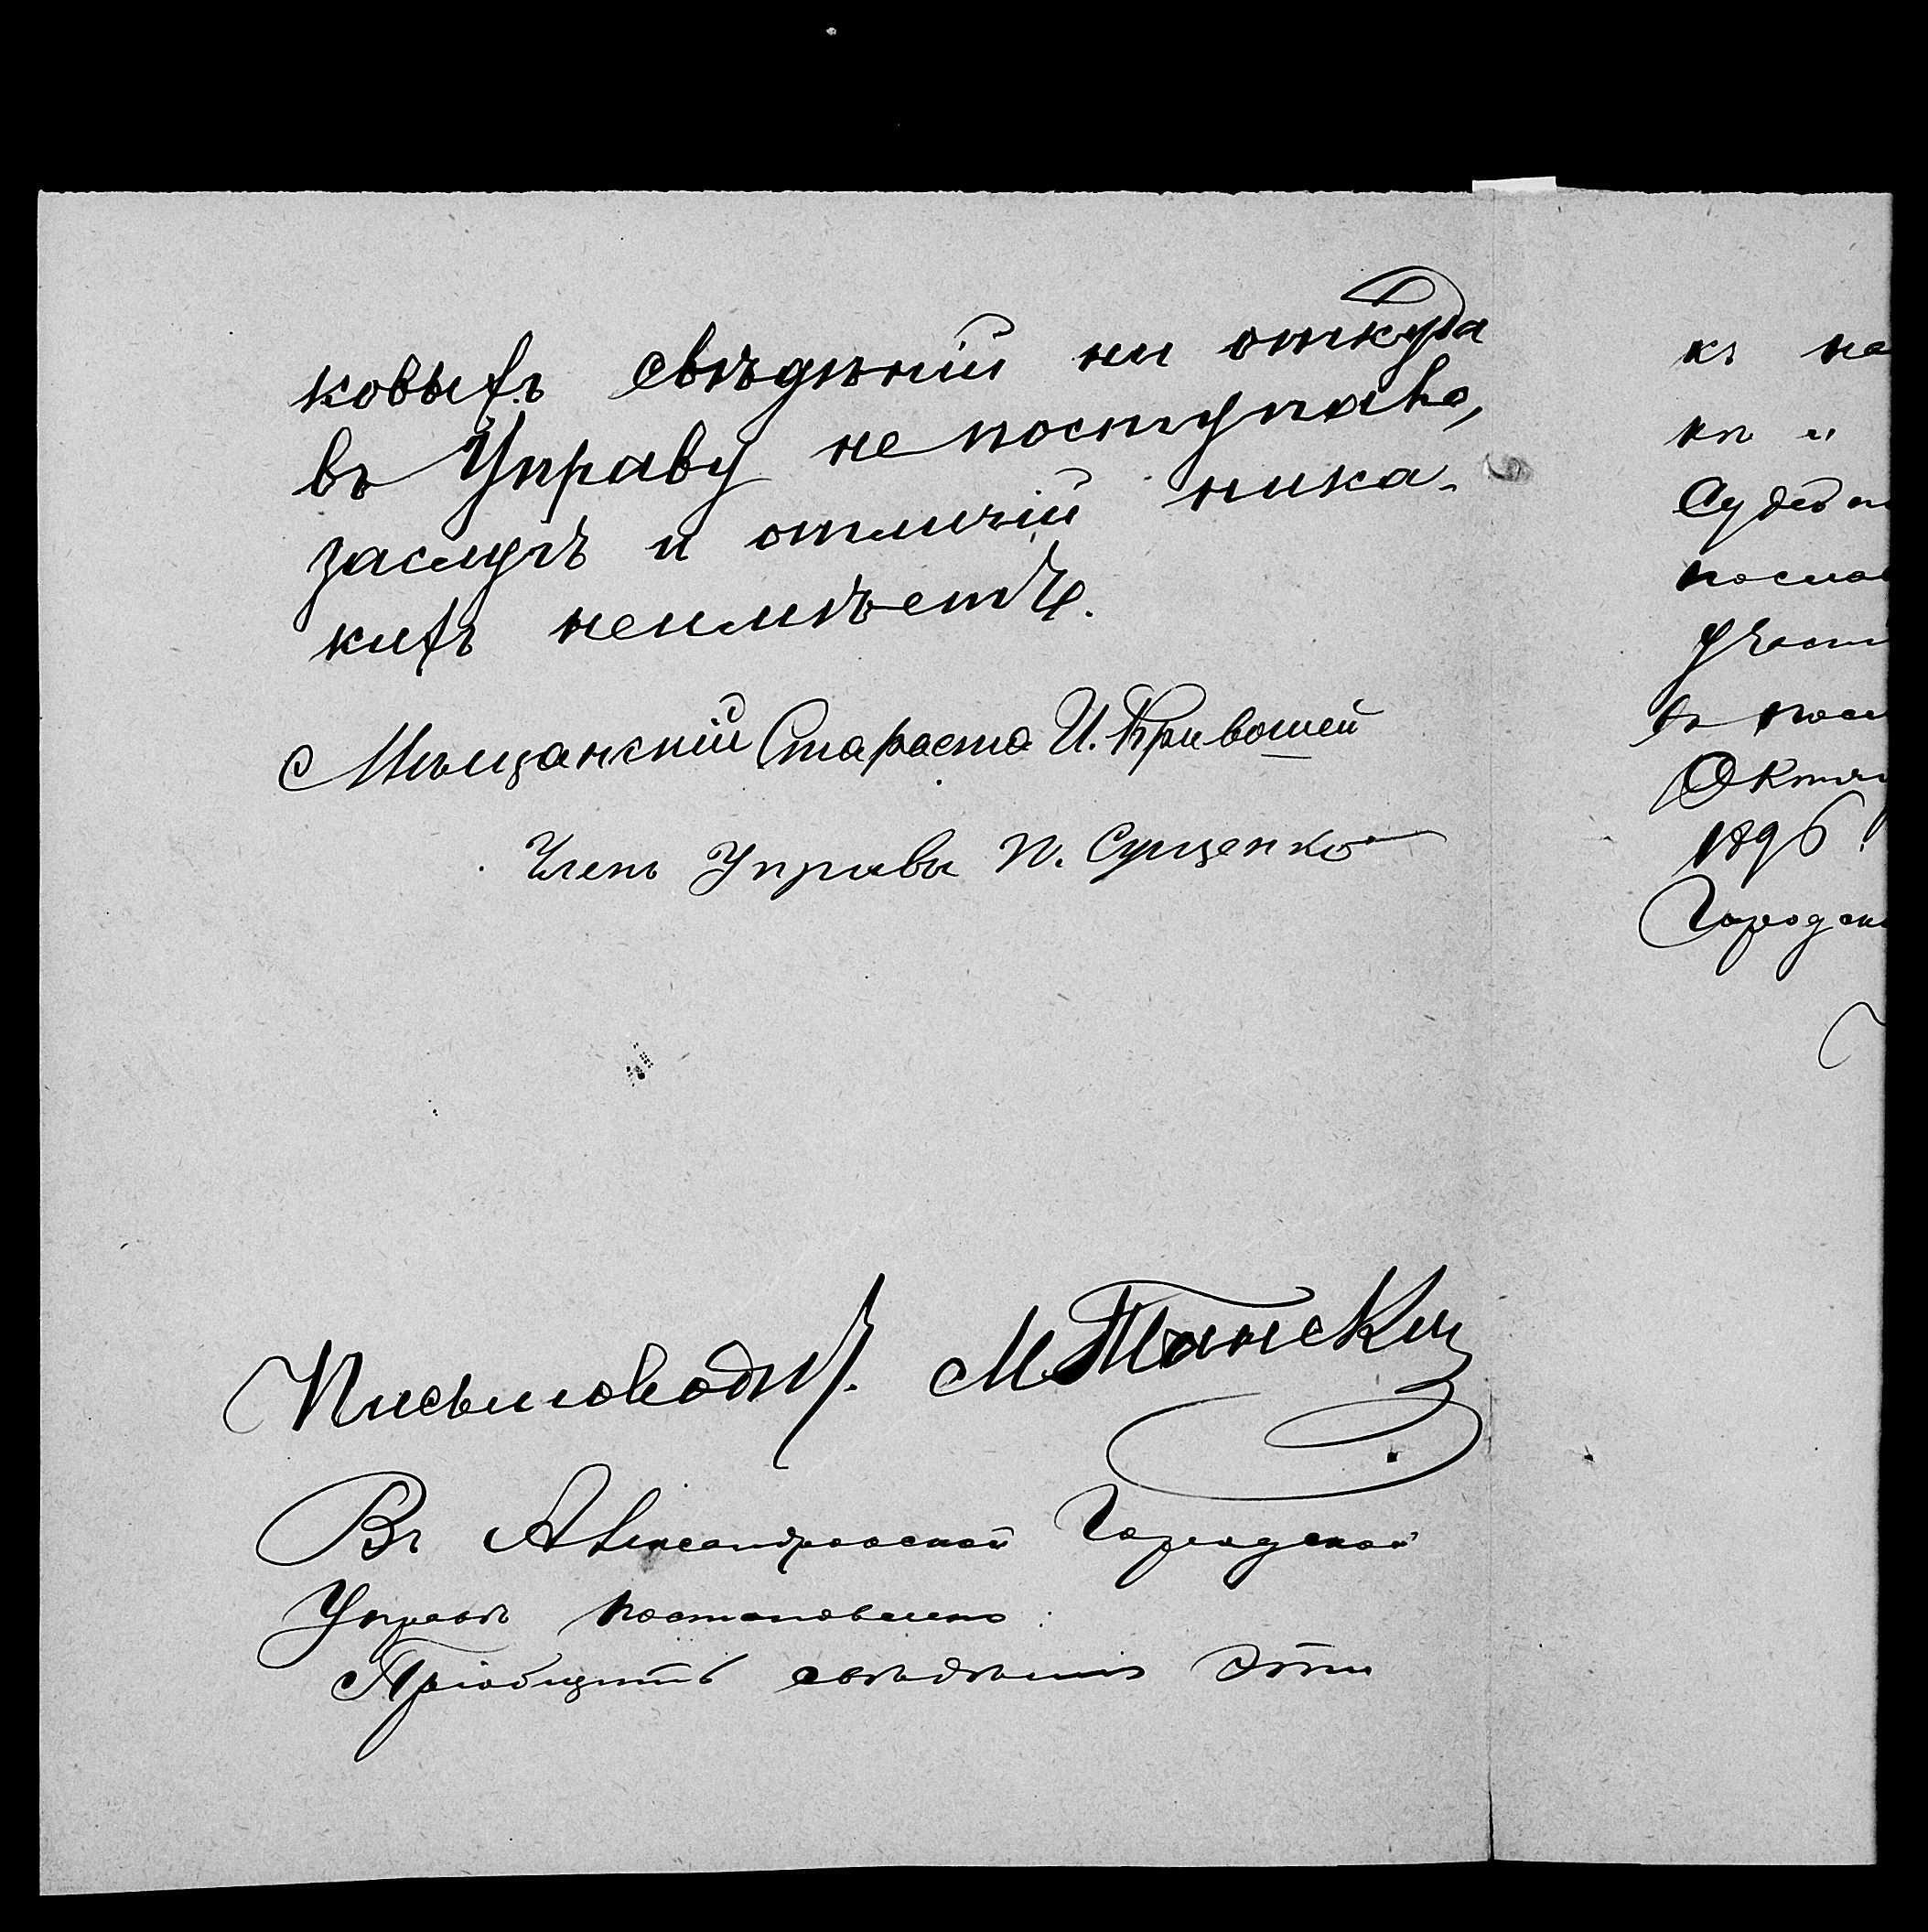 ковыхъ свѣдѣній ни откуда
въ Управу не поступало,
заслугъ и отличій ника-
кихъ неимѣетъ.
Мѣщанскій Стараста И. Кривошей
Членъ Управы П. Сущенко
Письмоводит. М. Танскій
Въ Александровской Городской
Управѣ постановлено:
Пріобщить свѣдѣнія эти
къ на
кѣ и
Судеб
послав
Участ
въ
Октяб
1896
Городск